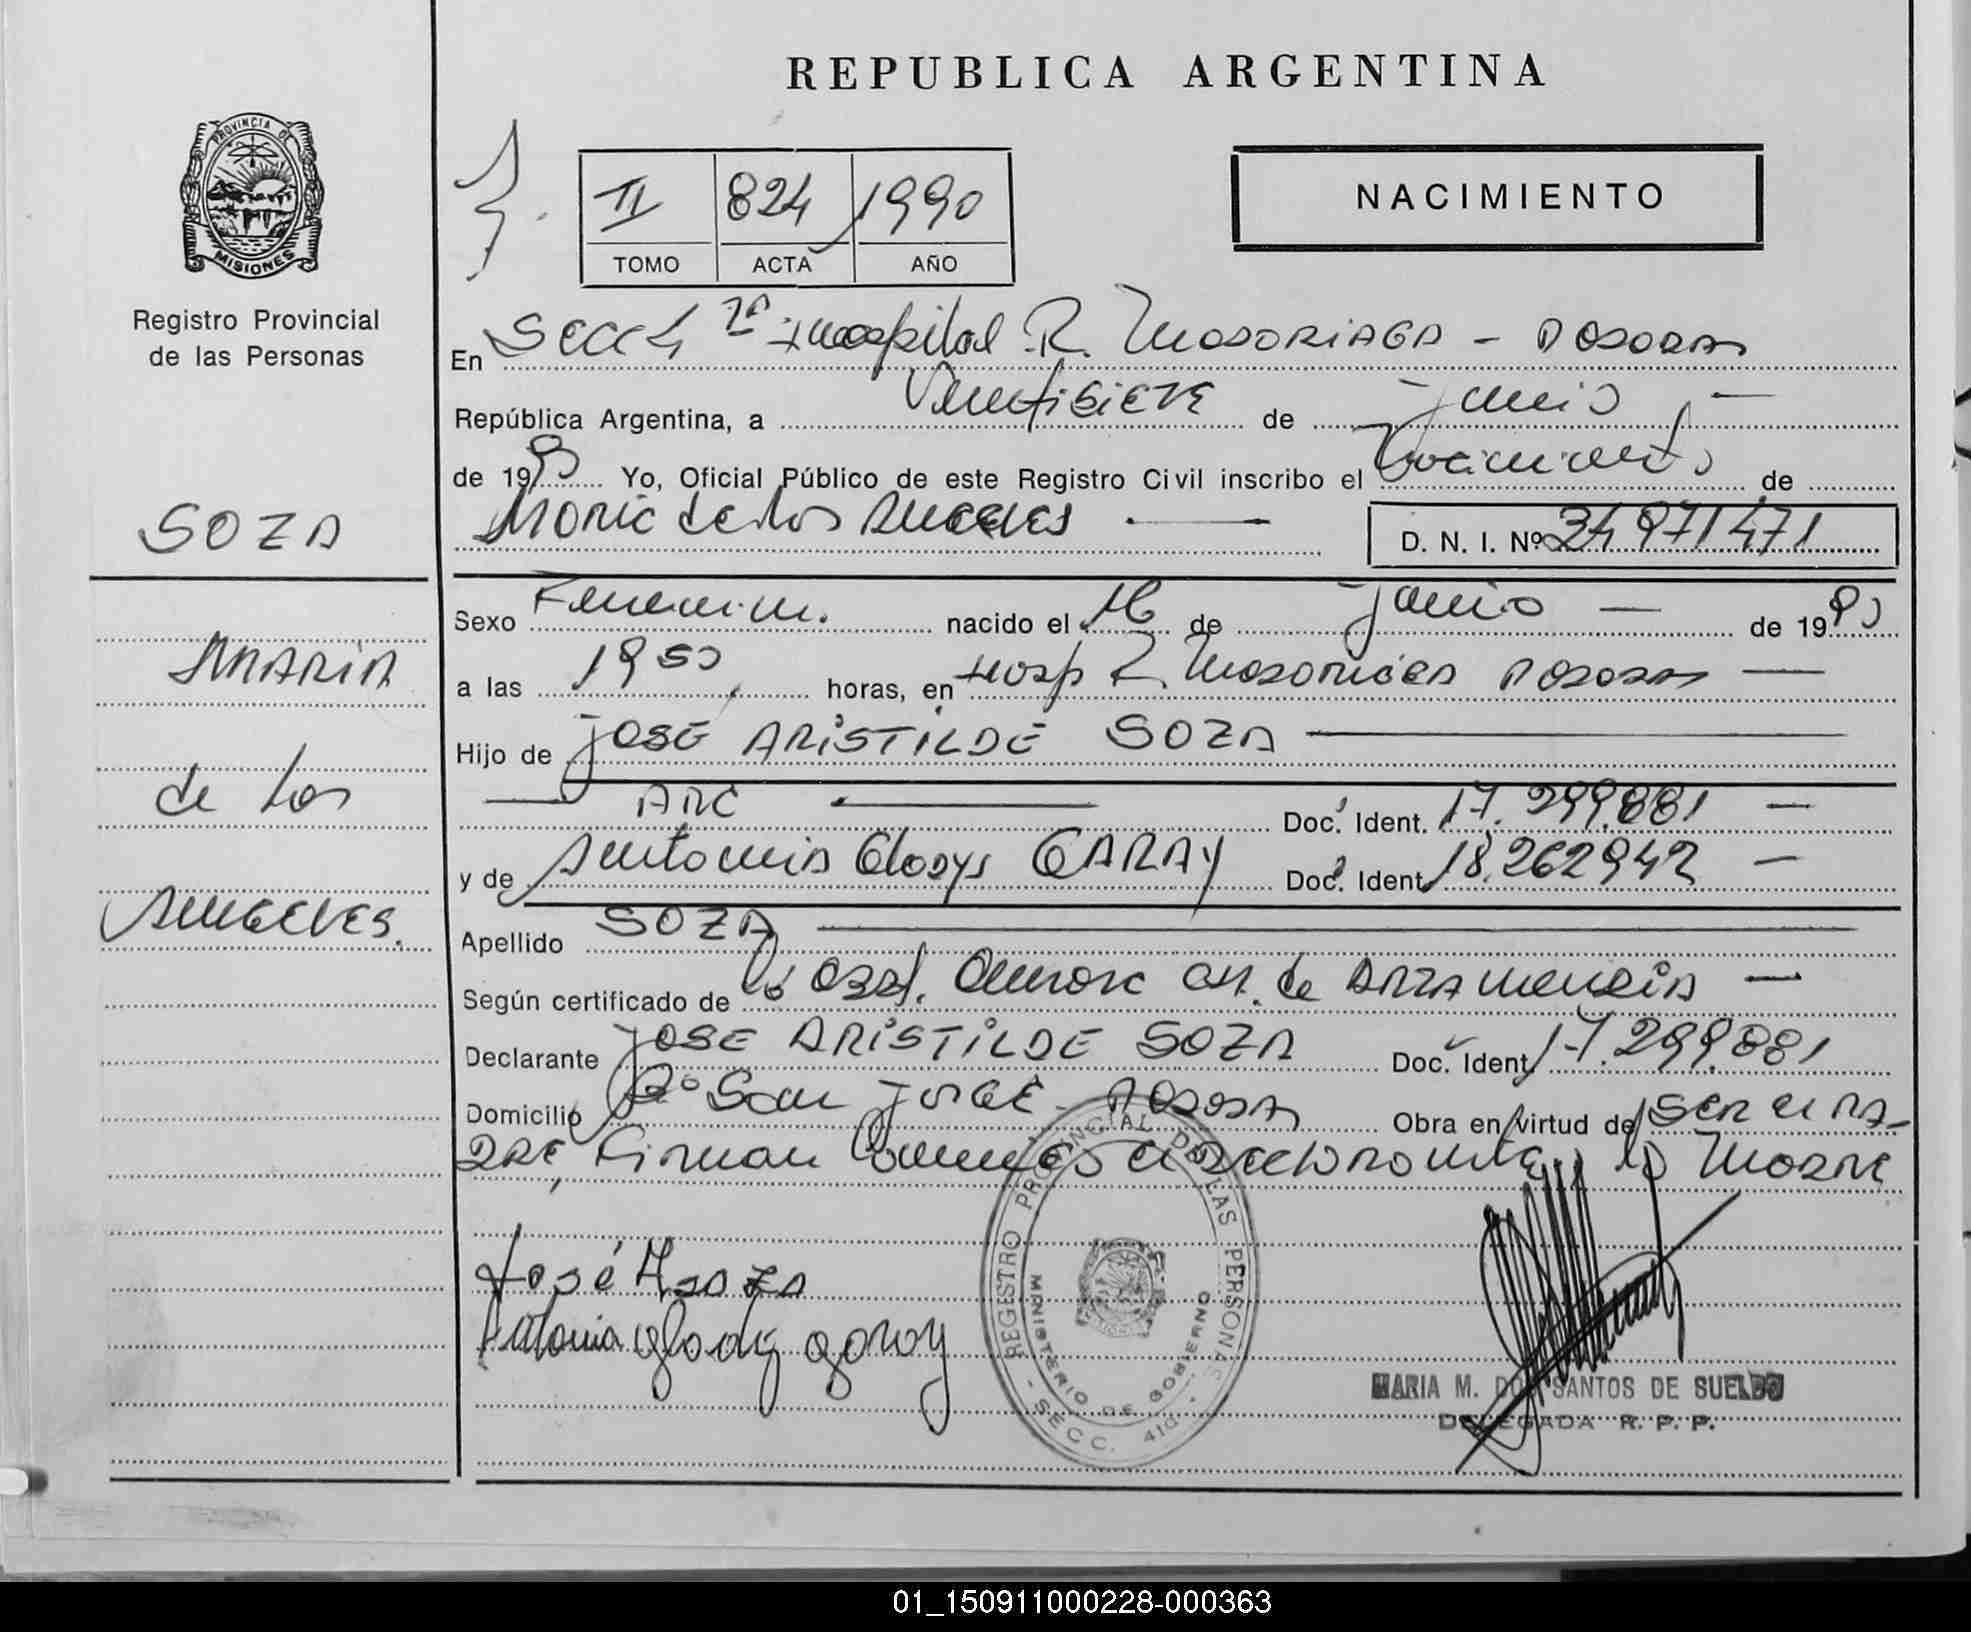 REPUBLICA ARGENTINA
PROVINCIA DE
MISIONES
Registro Provincial
de las Personas
II 824 1990
TOMO ACTA AÑO
NACIMIENTO
En Secc 4 Hospital R. Madariaga - Posadas
República Argentina, a Veintisiete de junio
de 1990 Yo, Oficial Público de este Registro Civil inscribo el Nacimiento de
Maria de los Angeles D. N. I. Nº 34971471
SOZA
MARIA
de los
Angeles.
Sexo Femenino. nacido el 16 de junio de 1990
a las 1950 horas, en Hosp R. Madariaga Posadas
Hijo de JOSE ARISTILDE SOZA
ARG Doc. Ident. 17.299.881
y de Antonia Gladys GARAY Doc. Ident. 18.262942
Apellido SOZA
Según certificado de la Obst. de
Declarante JOSE ARISTILDE SOZA Doc. Ident. 17.299.881
Domicilio Bº San Jorge Posadas Obra en virtud de ser el pa-
dre, Firman la Madre
José A Soza
Antonia Glady Garay
REGISTRO PROVINCIAL DE LAS PERSONAS
MINISTERIO DE GOBIERNO
- SECC. 4ta. -
MARIA M. DOS SANTOS DE SUELDO
DELEGADA R. P. P.
01_150911000228-000363